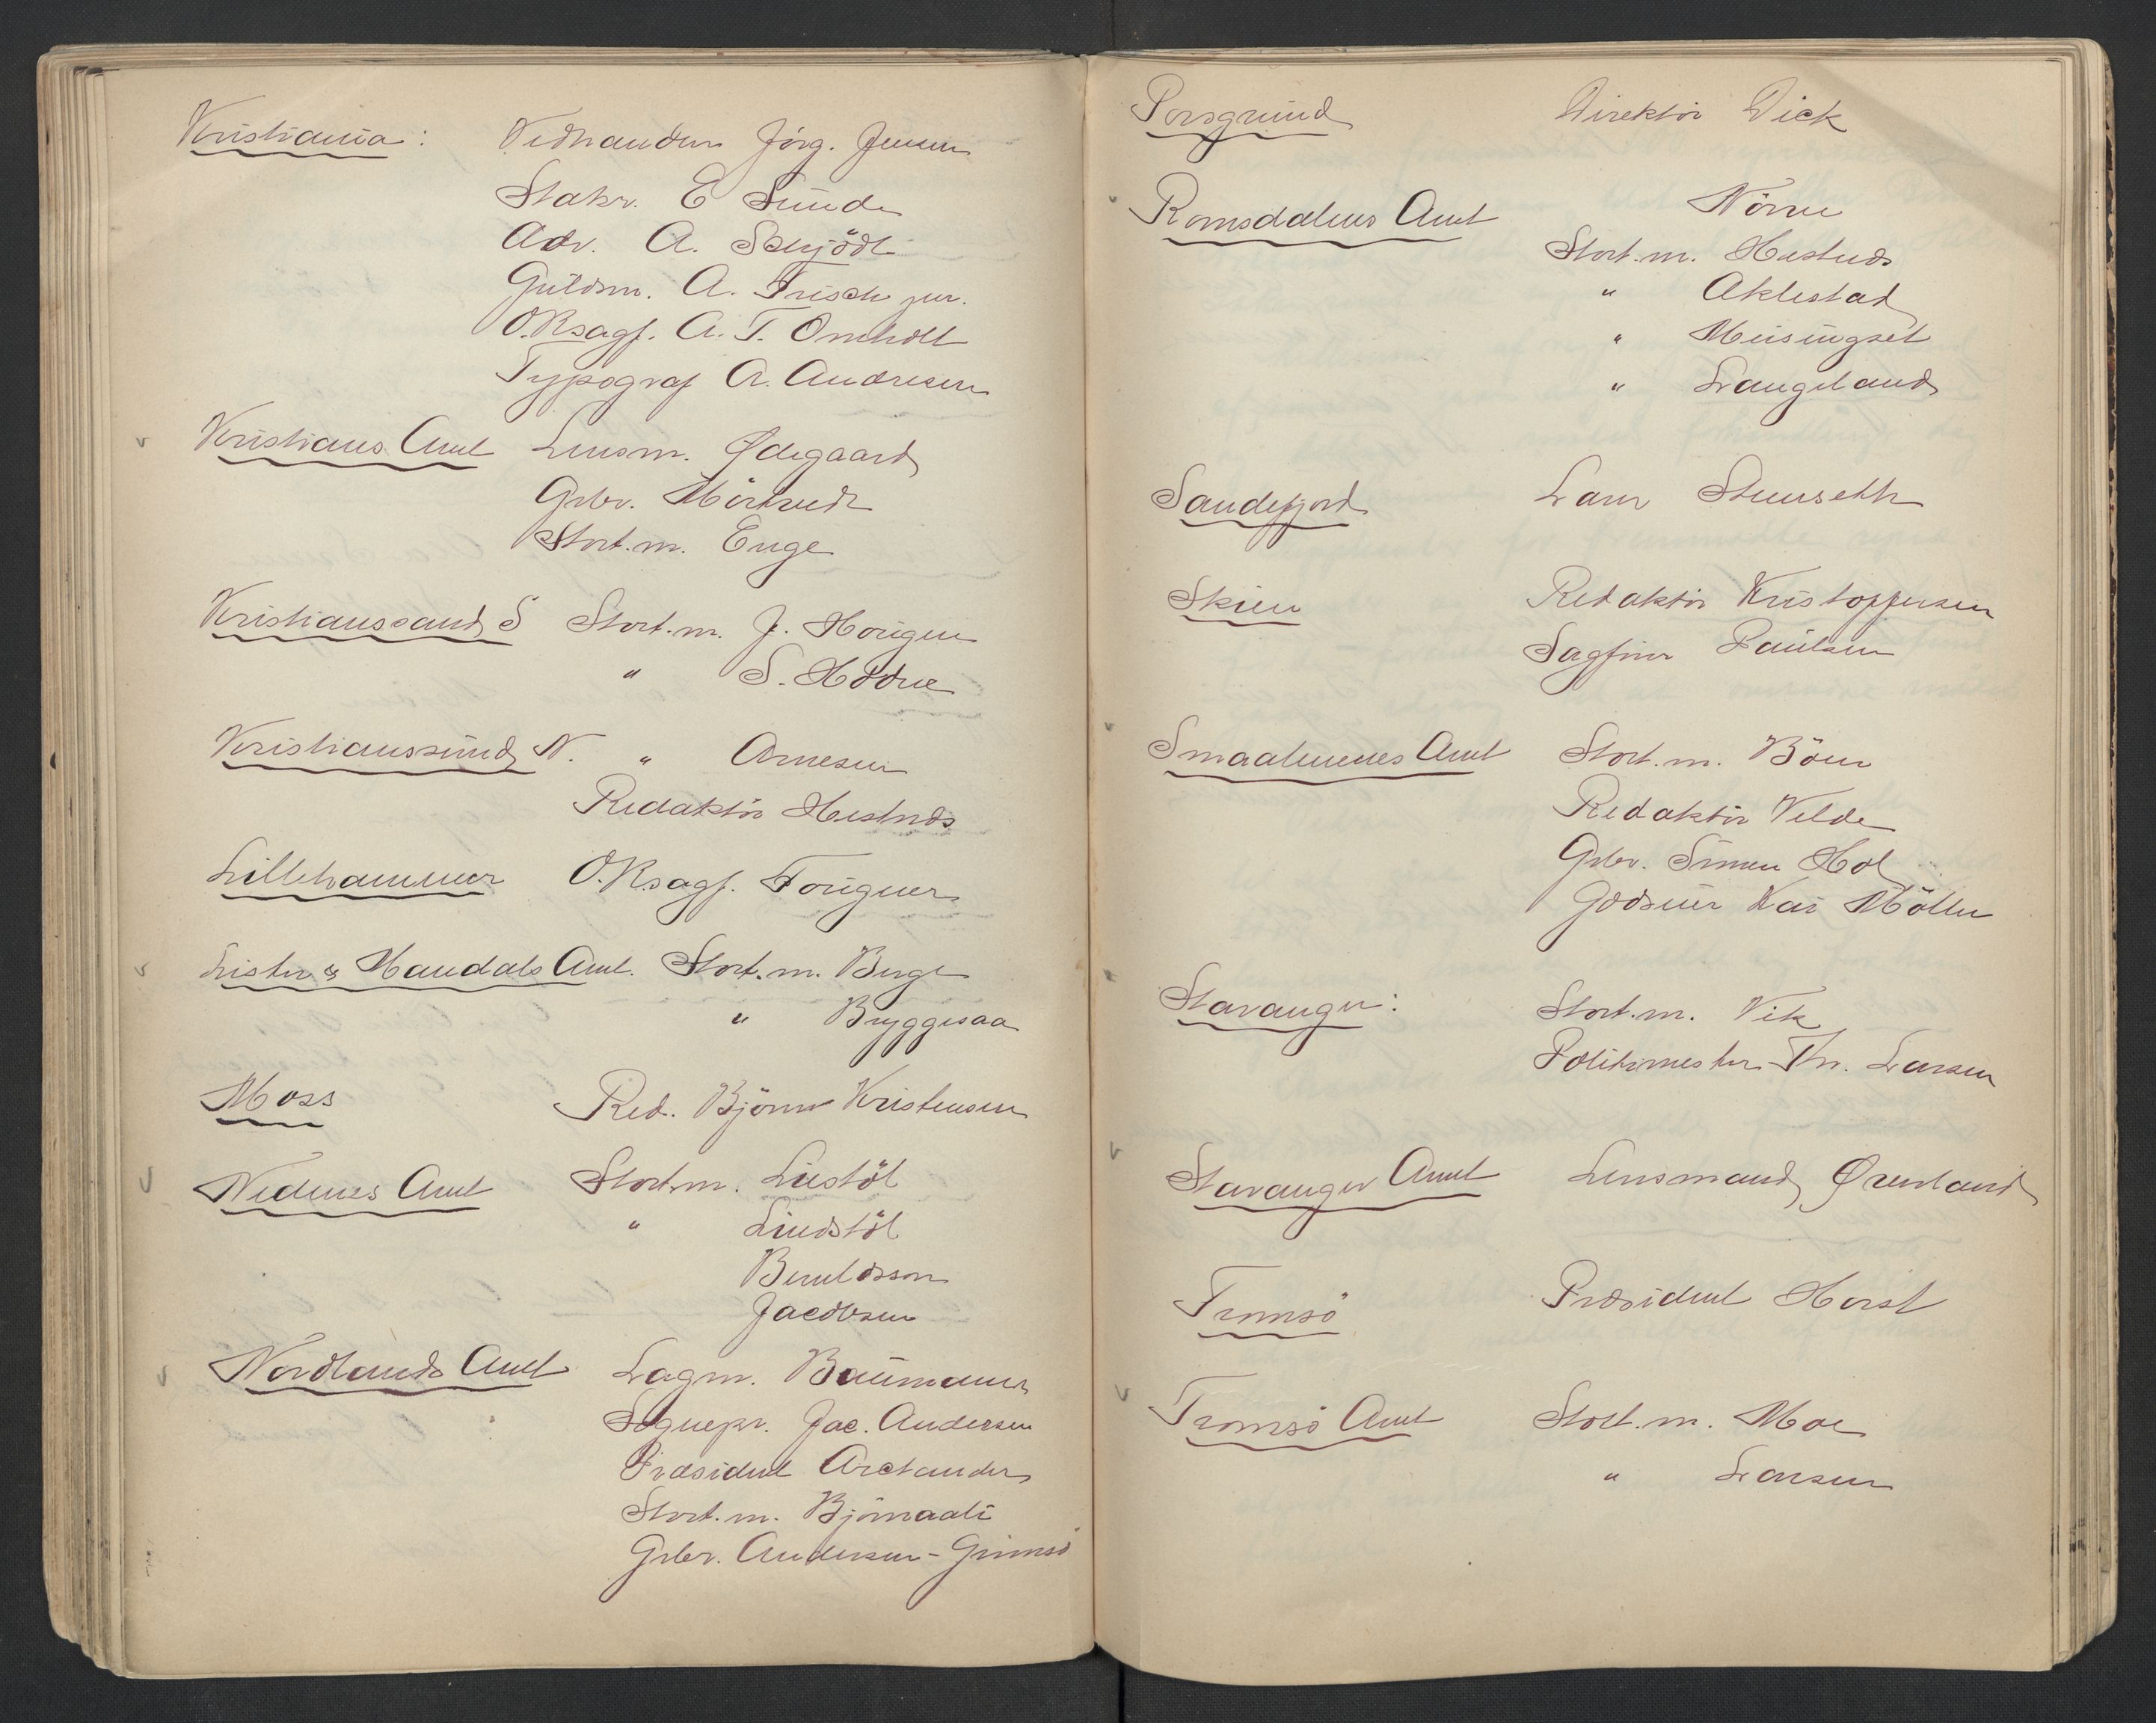 Kristiania: Vedhandler Jörg. Jensen
Statsr. E Sunde
Adv. A. Schjödt
Guldsm. A. Frisch jun.
O.R.sagf. A. T. Omholt
Typograf A. Andresen
v Kristians Amt Lensm. Ødegaard
Grbr. Mörtvedt
Stort.m. Enge
Kristianssand S Stort.m. J. Hougen
" S. Hödne
Kristianssund N. " Arnesen
Redaktör Hestnes
Lillehammer O.R.sagf. Fougner
v Lister & Mandals Amt. Stort.m. Berge
" Bryggesaa
Moss Red. Björn Kristensen
v Nedenes Amt Stort.m. Liestöl
" Lindstöl
Berntsson
Jacobsen
v Nordlands Amt Lagm. Baumann
Sognepr. Jac. Andersen
Præsident Arctander
Stort.m. Björnaali
Grbr. Andersen-Grimsö
Porsgrund Direktör Dick
v Romsdalens Amt Nörve
Stort.m. Hestnes
" Aklestad
" Meisingset
" Langeland
Sandefjord Stenseth
Skien Redaktör Kristoffersen
Sagförer Paulsen
v Smaalenenes Amt Stort.m. Böen
Redaktör Velde
Grbr. Simen Hol
Godseier Kai Möller
Stavanger: Stort.m. Vik
Politimester Th. Larsen
v Stavanger Amt Lensmand Øverland
Tromsö Præsident Horst
v Tromsö Amt Stort.m. Moe
" Larsen